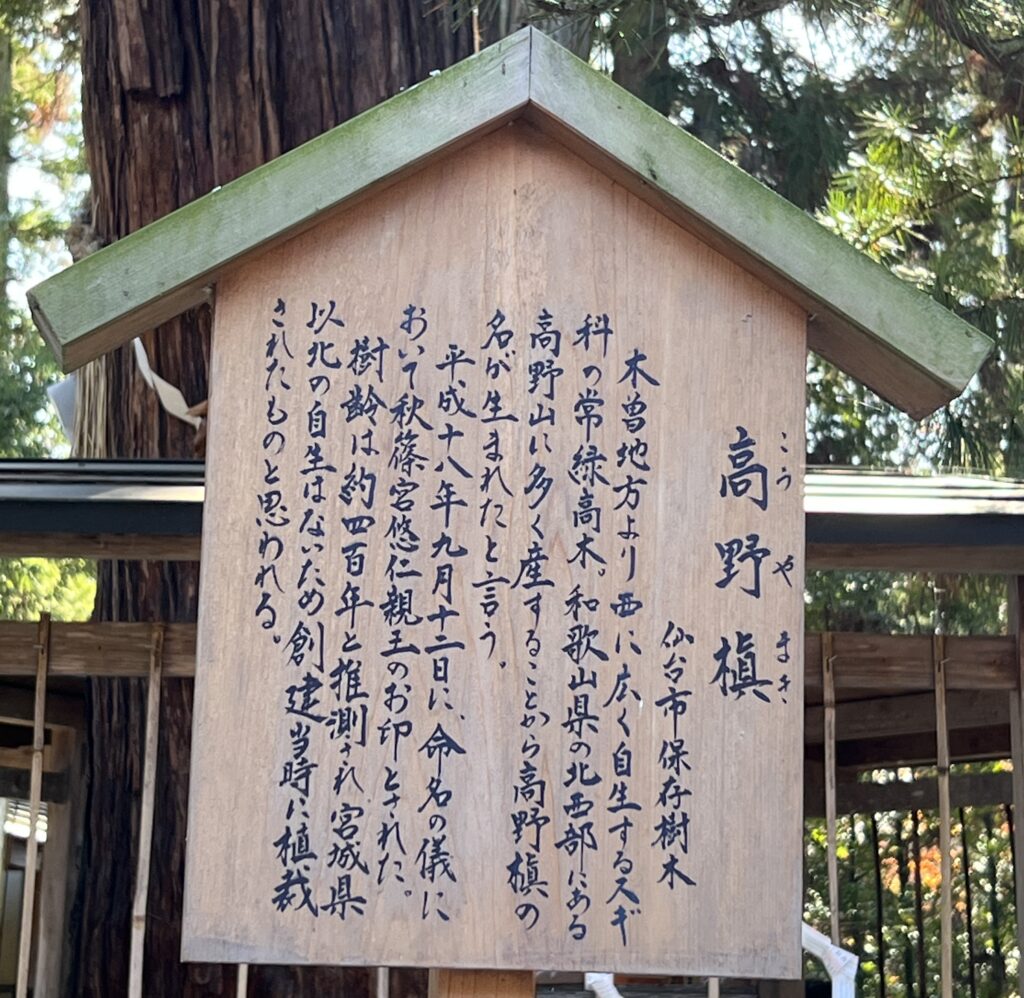 高野槇
こうやまき
仙台市保存樹木
木曽地方より西に広く自生するスギ
科の常緑高木。和歌山県の北西部にある
高野山に多く産することから高野槇の
名が生まれたと言う。
平成十八年九月十二日に、命名の儀に
おいて秋篠宮悠仁親王のお印とされた。
樹齢は約四百年と推測され宮城県
以北の自生はないため創建当時に植栽
されたものと思われる。